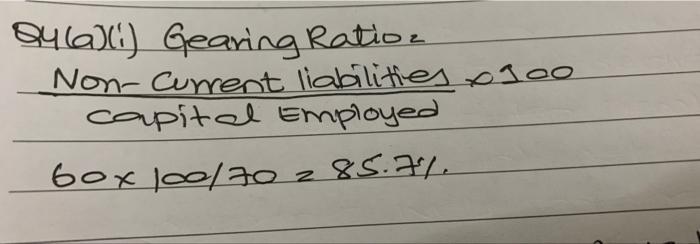 Q4(a)(i) Gearing Ratio =
Non-Current liabilities x 100
Capital Employed
60 x 100/70 = 85.7%.